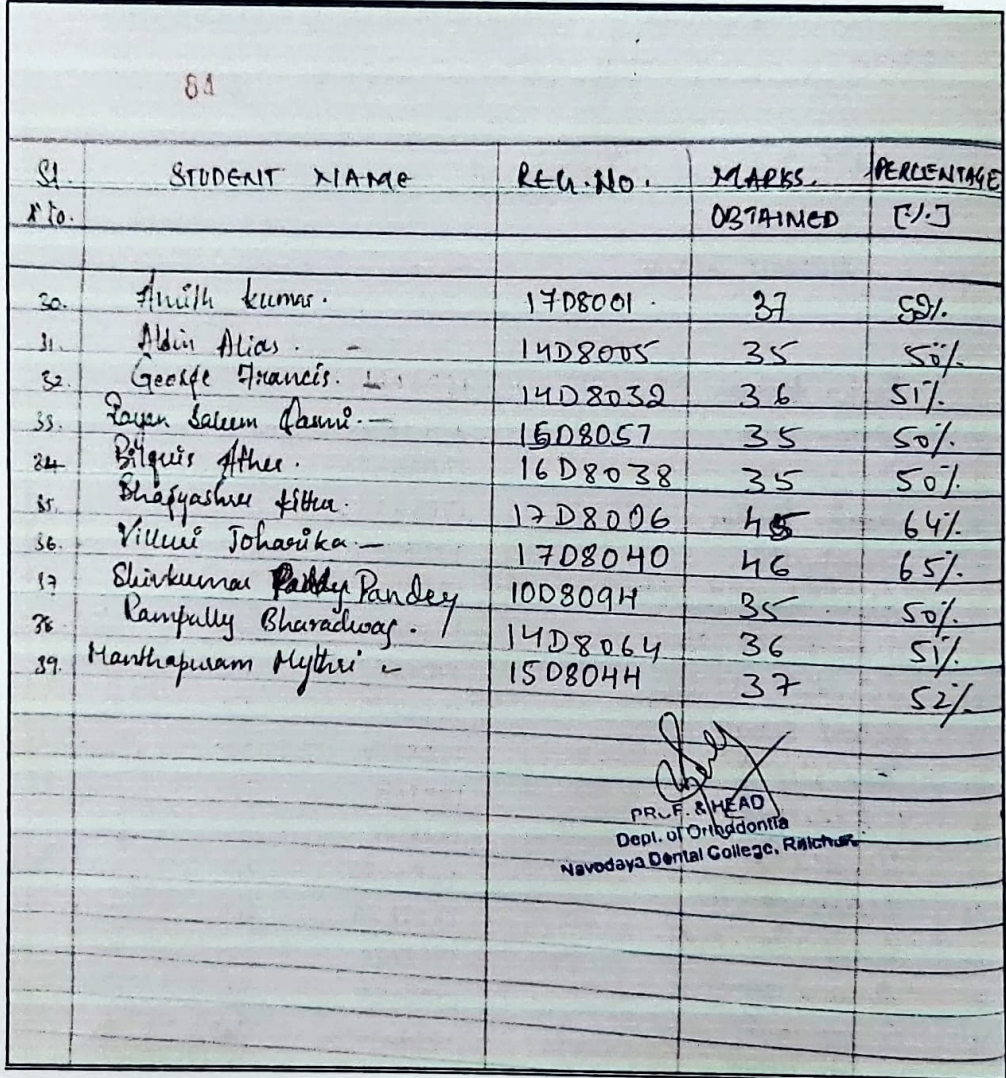 81
Sl. STUDENT NAME REG.NO. MARKS. PERCENTAGE
No. OBTAINED [%]
30. Amith kumar. 17D8001. 37 52%
31. Aldin Alias. - 14D8005 35 50%
32. George Francis. 14D8032 36 51%
33. Rayan Saleem Qasmi. - 16D8057 35 50%
34 Bilquis Ather. 16D8038 35 50%
35. Bhagyashree 17D8006 45 64%
36. Johasika - 17D8040 46 65%
37 Shivkumar Pandey 10D8094 35 50%
38 Rampally Bharadwaj. 14D8064 36 51%
39. Manthapuram Mythri - 15D8044 37 52%
PROF. & HEAD
Dept. of Orthodontia
Navodaya Dental College, Raichur